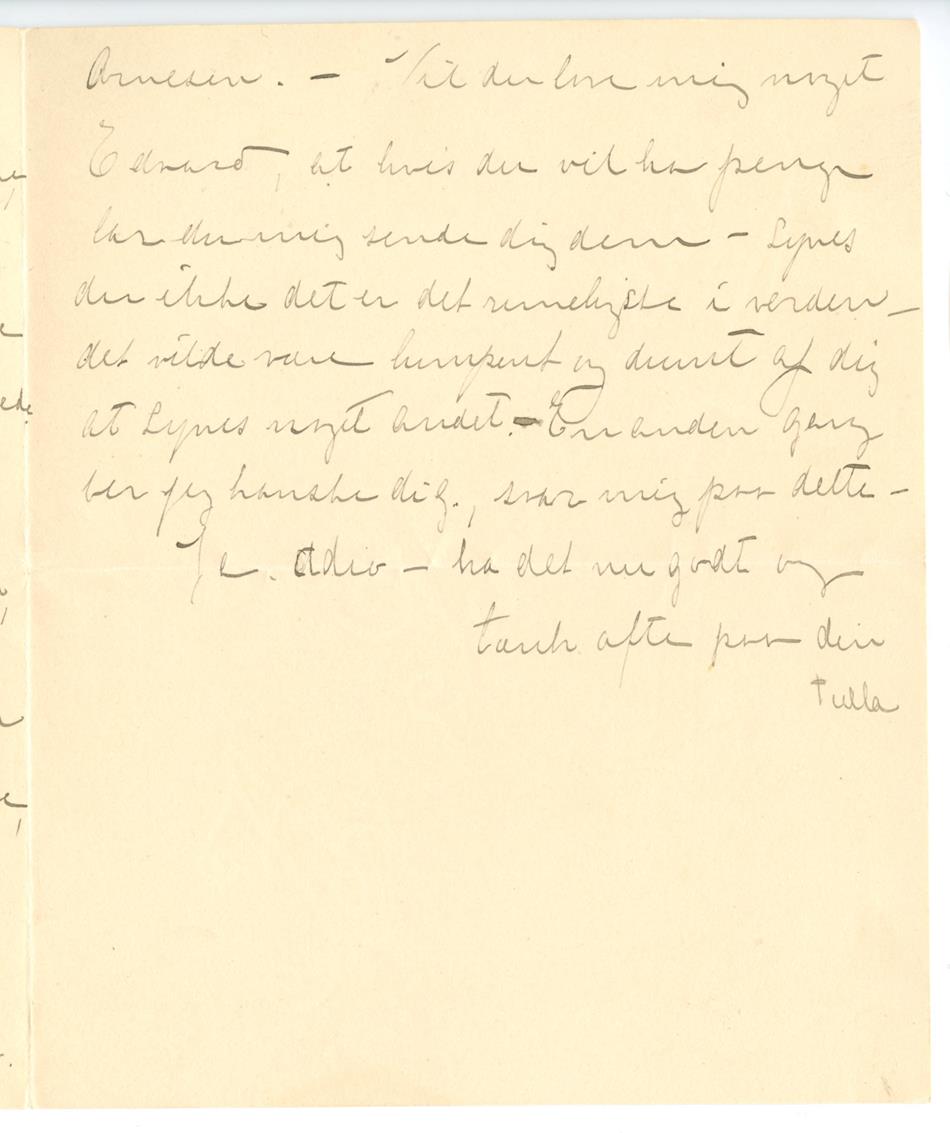 Arnesen. – Vil du love mig noget
Edvard, at hvis du vil ha penge
lar du mig sende dig dem – Synes
du ikke det er det rimeligste i verden –
det vilde være lumpent og dumt af dig
at synes noget andet. – En anden gang
ber jeg kanske dig., svar mig paa dette –
Ja. Adio – ha det nu godt og
tænk ofte paa din
Tulla